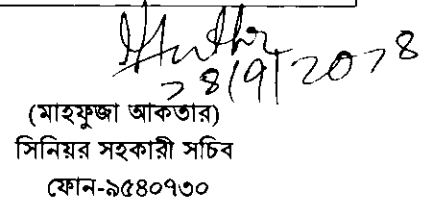 ১৪/৭/২০১৪
(মাহফুজা আকতার)
সিনিয়র সহকারী সচিব
ফোন-৯৫৪০৭৩০